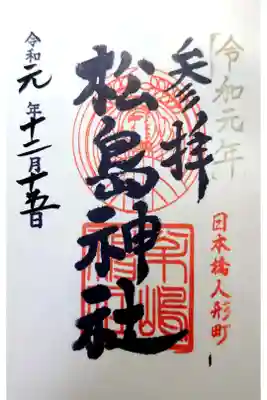 「令和元年」
参拝
日本橋人形町
松島神社
令和元年十二月十五日